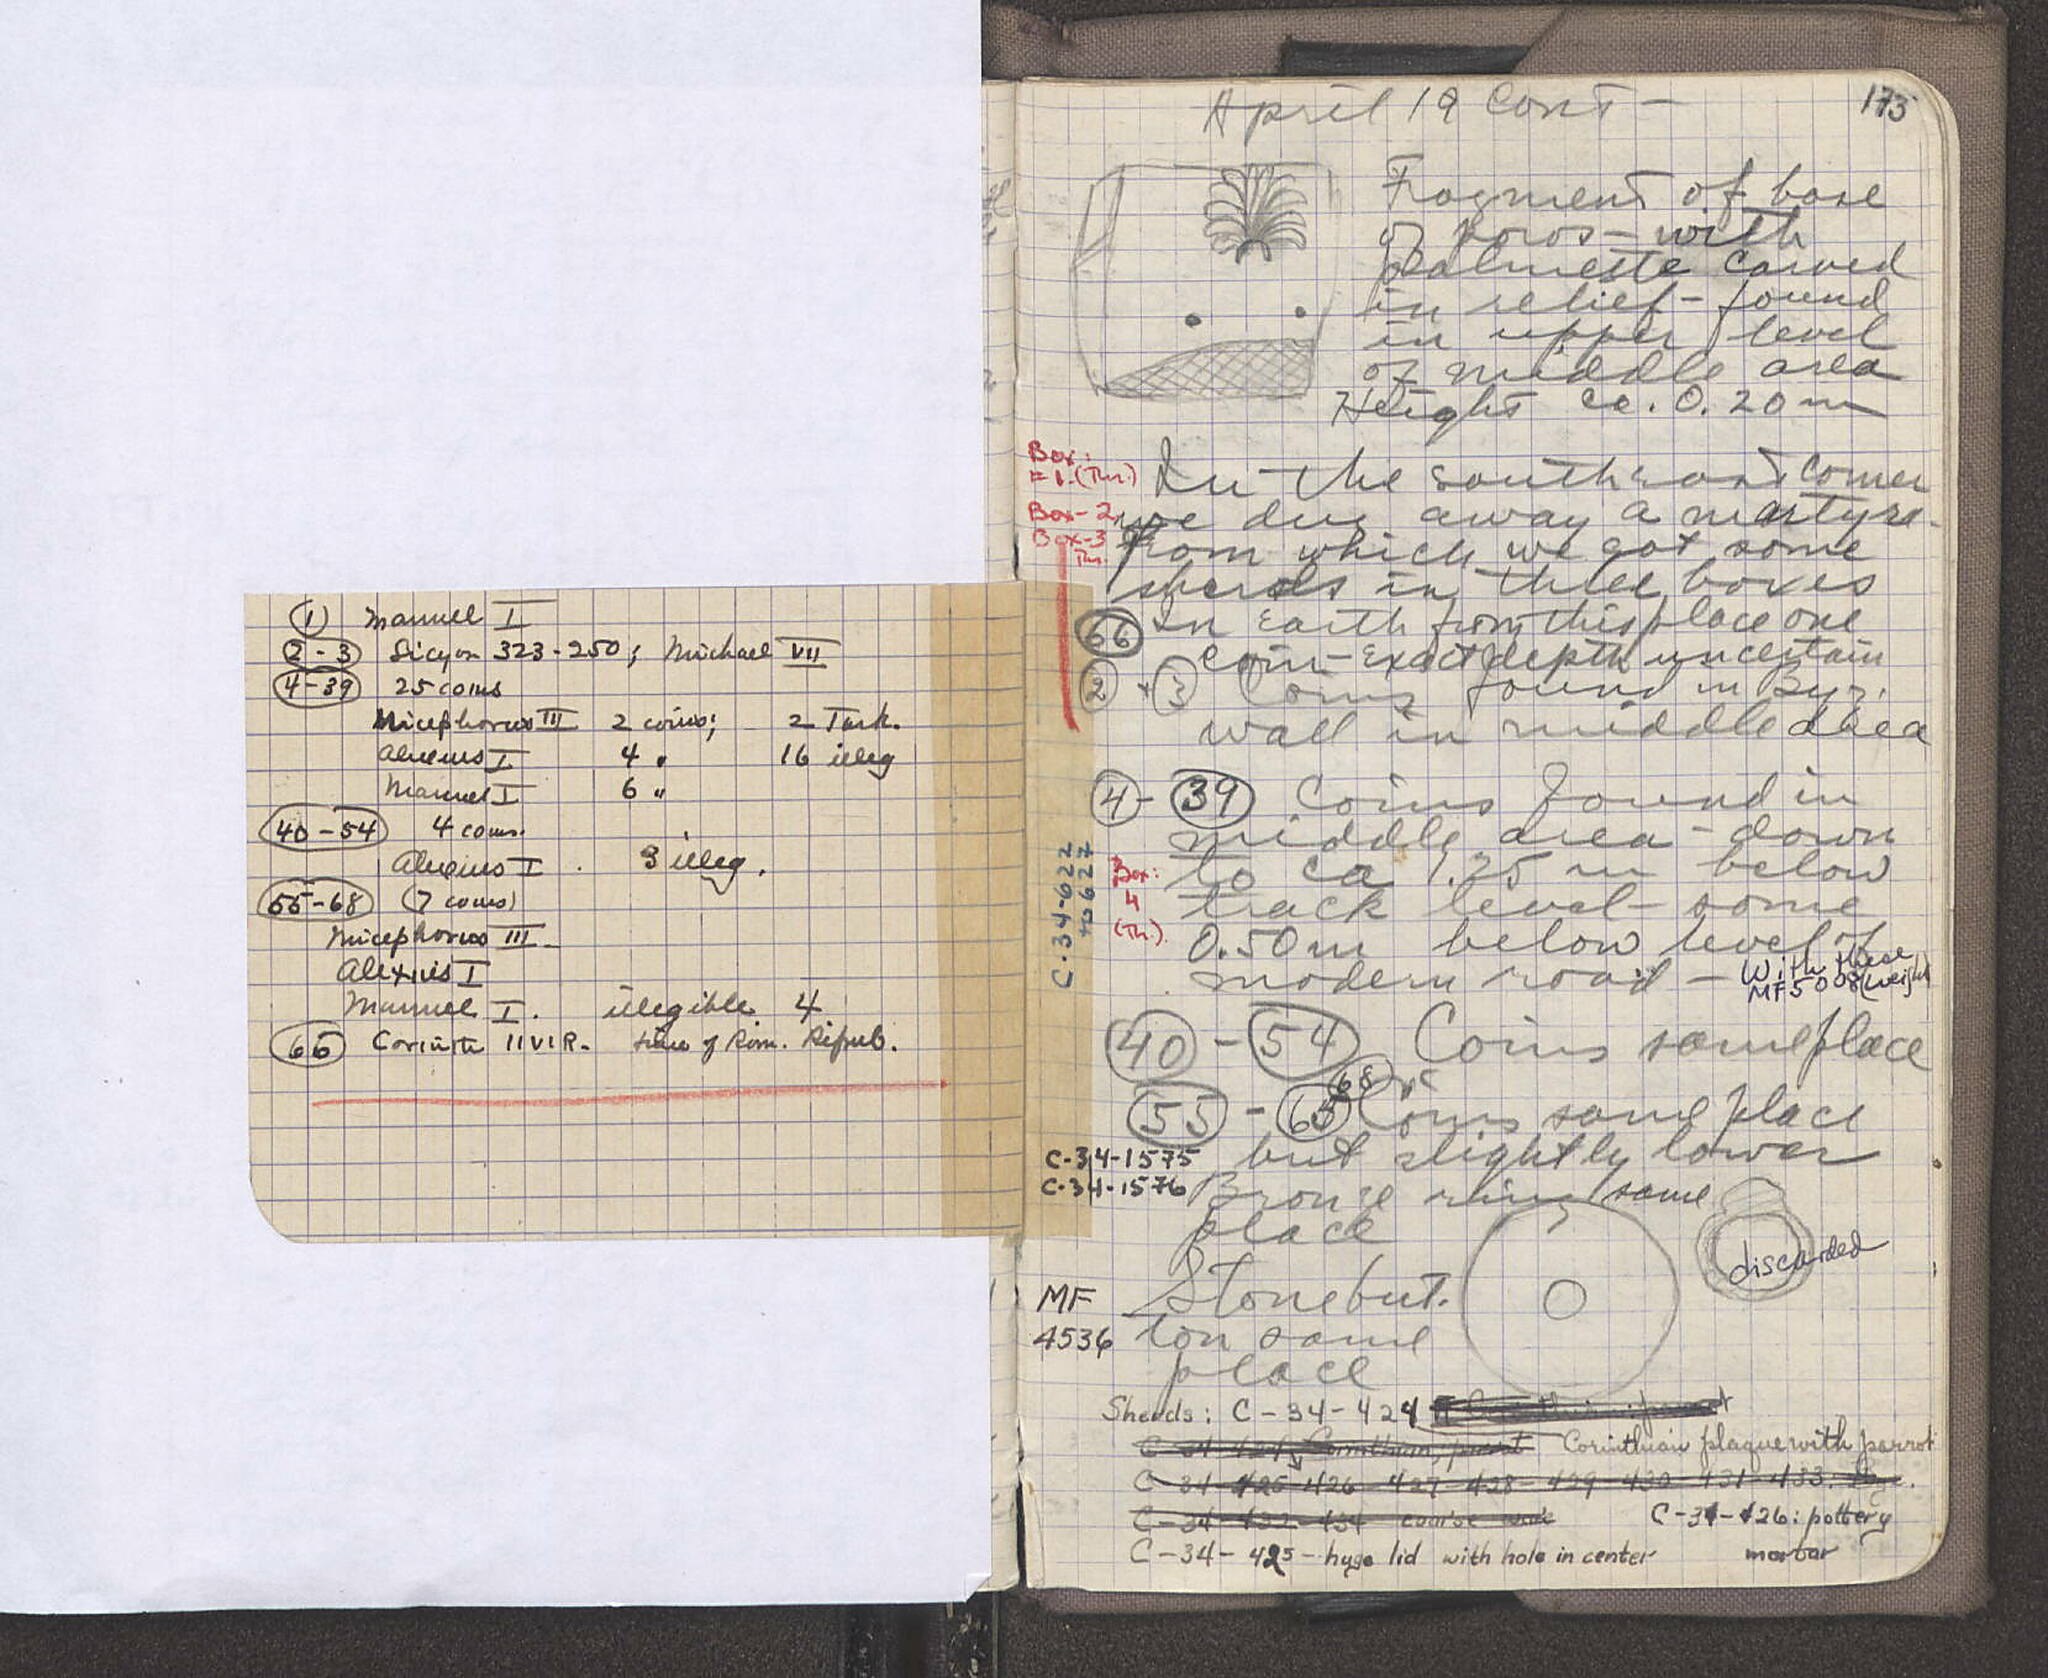 ① Manuel I
2-3 Sicyon 323-250; Michael VII
4-39 25 coins
Nicephorus III 2 coins; 2 Turk.
Alexius I 4 " 16 illeg
Manuel I 6 "
40-54 4 coins.
Alexius I . 3 illeg.
55-68 (7 coins)
Nicephorus III.
Alexius I
Manuel I. illegible 4
66 Corinth IIVIR. time of Rom. Repub.
April 19 cont - 173
Fragment of base
of poros - with
palmette carved
in relief - found
in upper level
of middle area
Height ca. 0.20 m
Box:
= 1. (Thr.)
Box - 2
Box - 3
Thr.
In the southeast corner
we dug away a martyra -
from which we got some
sherds in three boxes
66 In Earth from this place one
coin - Exact depth uncertain
2 + 3 Coins found in Byz.
wall in middle area
4 - 39 Coins found in
middle area - down
to ca 1.25 m below
track level - some
0.50 m below level of
modern road - With these
MF 5008 (weight)
C-34-622
to 627
Box:
4
(Thr.)
40 - 54 Coins same place
68
55 - 65 Coins same place
but slightly lower
C-34-1575
C-34-1576
Bronze ring same
place
discarded
MF
4536
Stone but-
ton same
place
Sherds: C - 34 - 424
Corinthian plaque with parrot
C - 34 - 425 - 426 - 427 - 428 - 429 - 430 - 431 - 433:
C - 34 - 432 - 434 coarse ware C - 34 - 426: pottery
C - 34 - 425 - huge lid with hole in center mortar